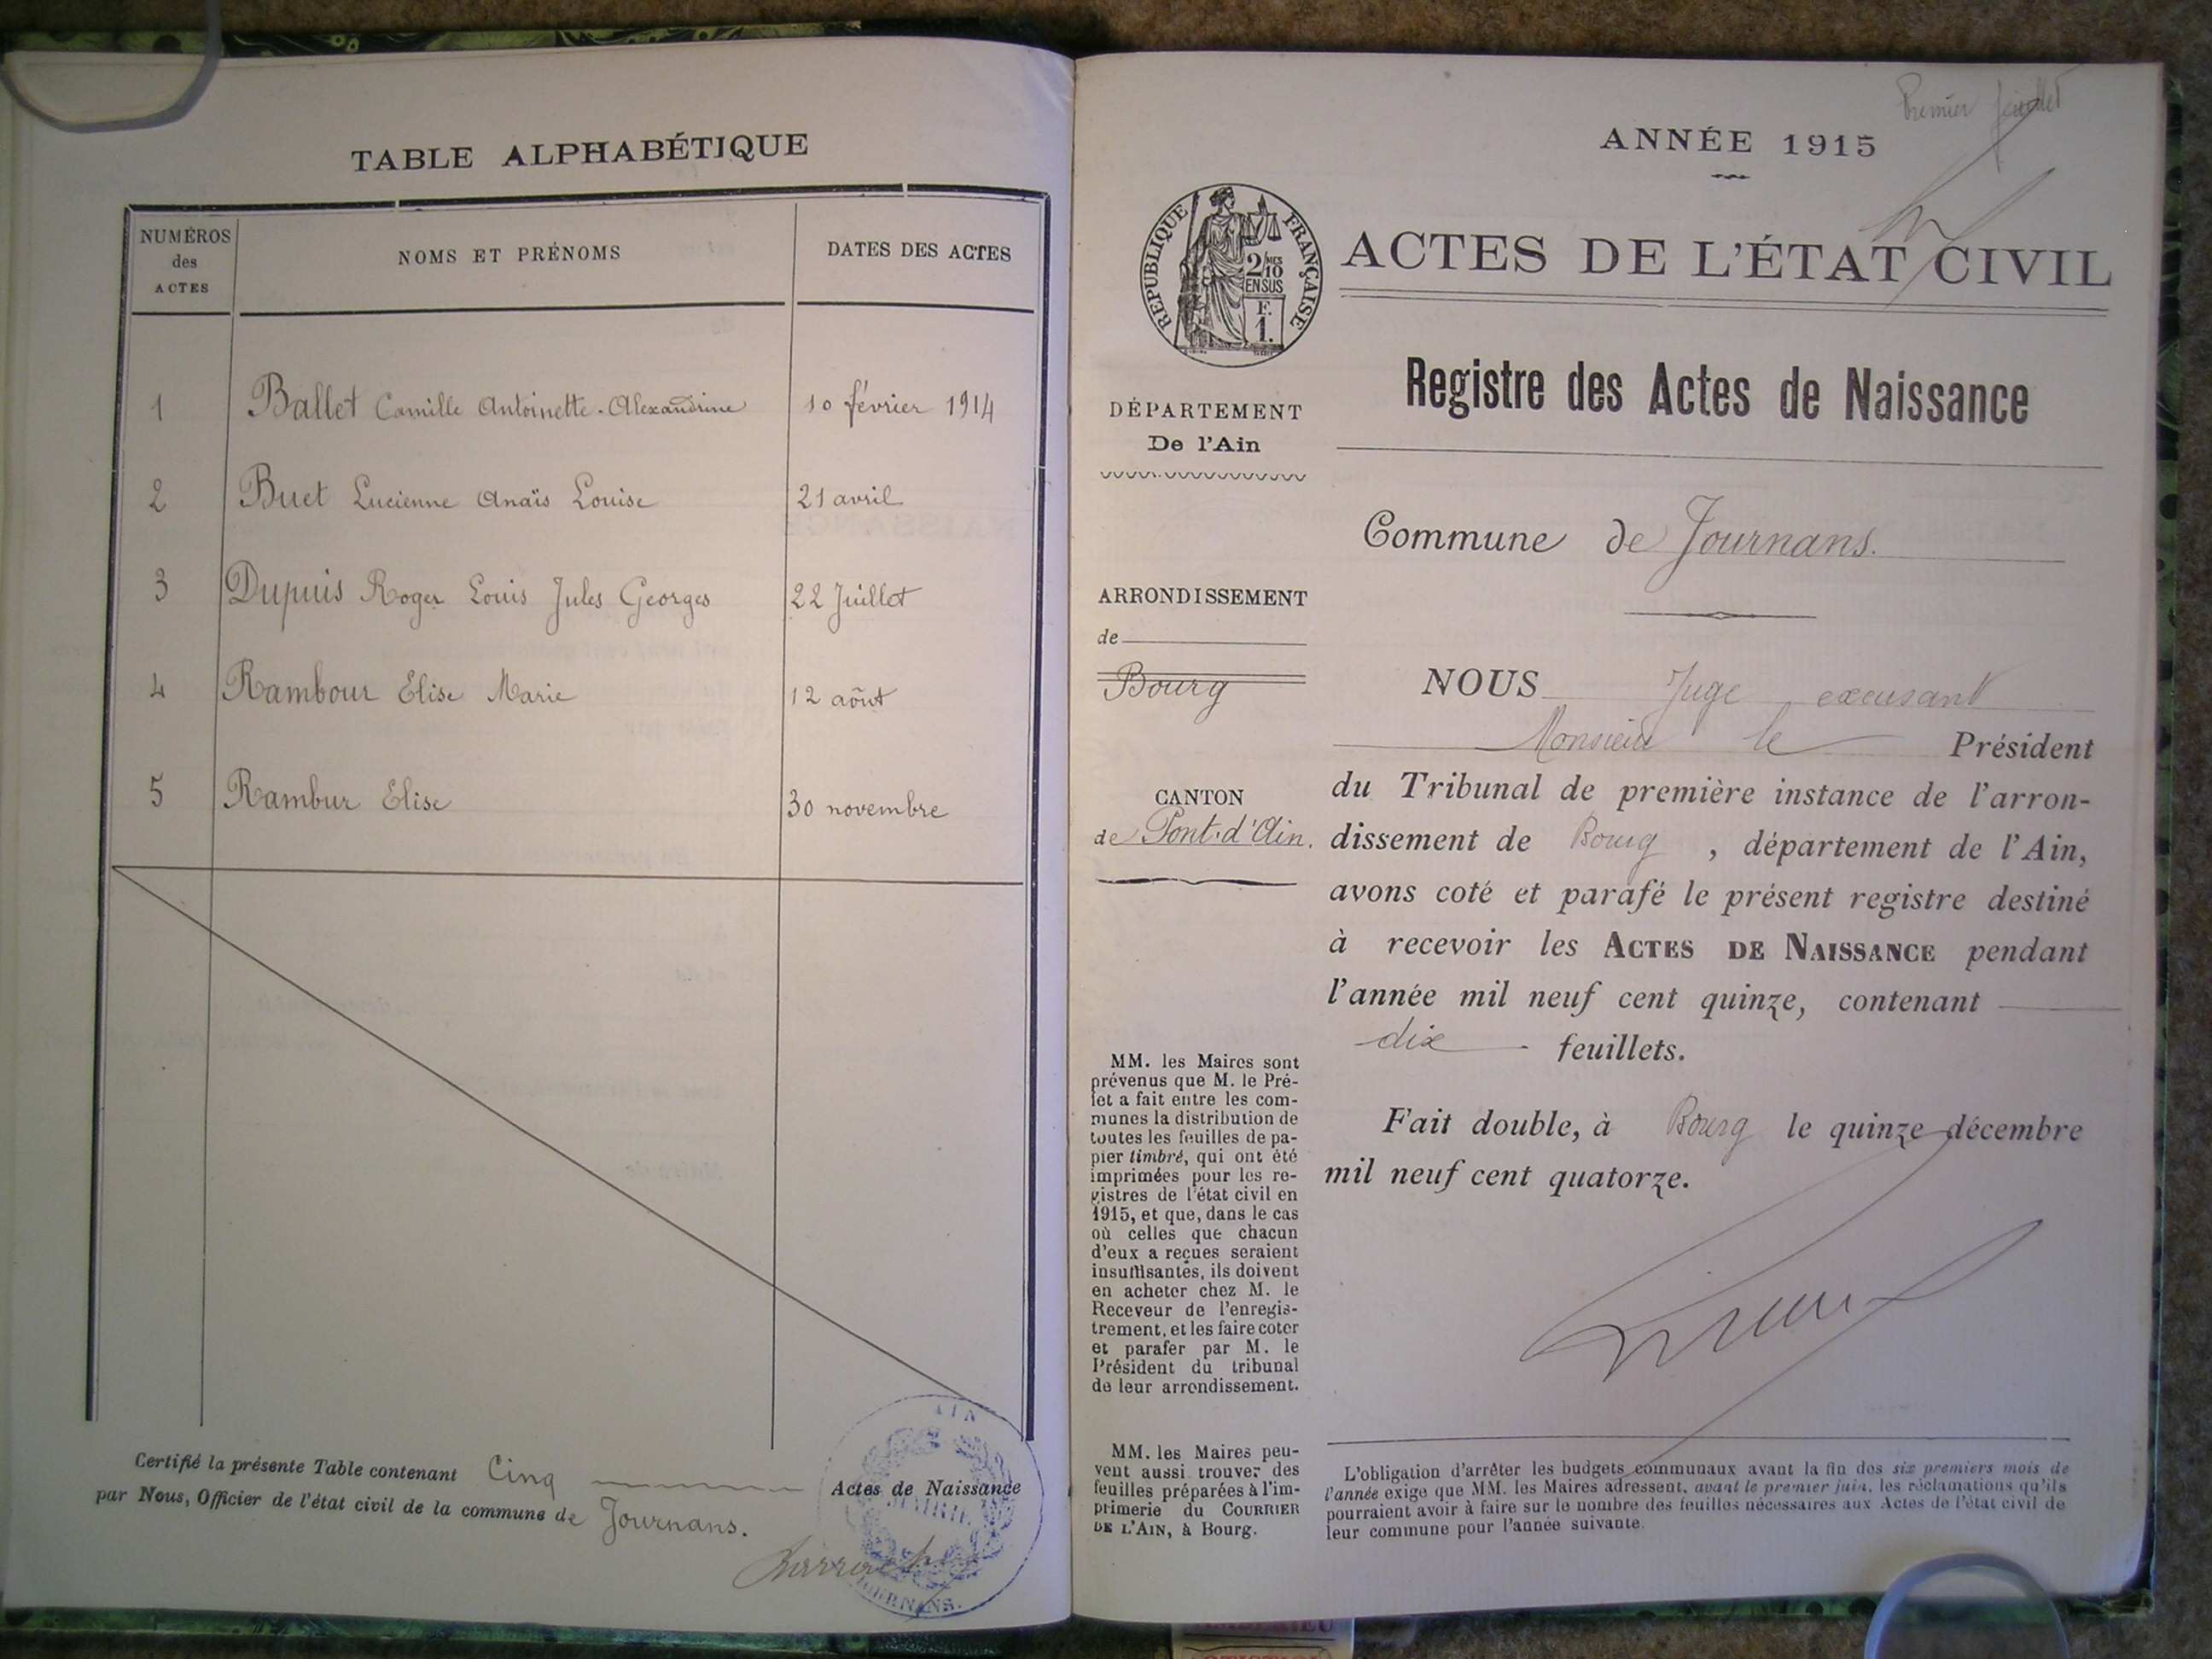 TABLE ALPHABÉTIQUE
NUMÉROS des ACTES
NOMS ET PRÉNOMS
DATES DES ACTES
1 Ballet Camille Antoinette-Alexandrine 10 février 1914
2 Buet Lucienne Anaïs Louise 21 avril
3 Dupuis Roger Louis Jules Georges 22 Juillet
4 Rambour Elise Marie 12 août
5 Rambur Elise 30 novembre
Certifié la présente Table contenant Cinq Actes de Naissance
par Nous, Officier de l'état civil de la commune de Journans.
AIN
MAIRIE
JOURNANS.
Premier feuillet
ANNÉE 1915
RÉPUBLIQUE FRANÇAISE
2/10 MES
EN SUS
F.
1.
ACTES DE L'ÉTAT CIVIL
Registre des Actes de Naissance
DÉPARTEMENT
De l'Ain
Commune de Journans.
ARRONDISSEMENT
de
Bourg
CANTON
de Pont-d'Ain.
NOUS Juge excusant
Monsieur le Président
du Tribunal de première instance de l'arron-
dissement de Bourg, département de l'Ain,
avons coté et parafé le présent registre destiné
à recevoir les ACTES DE NAISSANCE pendant
l'année mil neuf cent quinze, contenant
dix feuillets.
Fait double, à Bourg le quinze décembre
mil neuf cent quatorze.
MM. les Maires sont
prévenus que M. le Pré-
fet a fait entre les com-
munes la distribution de
toutes les feuilles de pa-
pier timbré, qui ont été
imprimées pour les re-
gistres de l'état civil en
1915, et que, dans le cas
où celles que chacun
d'eux a reçues seraient
insuffisantes, ils doivent
en acheter chez M. le
Receveur de l'enregis-
trement, et les faire coter
et parafer par M. le
Président du tribunal
de leur arrondissement.
MM. les Maires peu-
vent aussi trouver des
feuilles préparées à l'im-
primerie du COURRIER
DE L'AIN, à Bourg.
L'obligation d'arrêter les budgets communaux avant la fin des six premiers mois de
l'année exige que MM. les Maires adressent, avant le premier juin, les réclamations qu'ils
pourraient avoir à faire sur le nombre des feuilles nécessaires aux Actes de l'état civil de
leur commune pour l'année suivante.